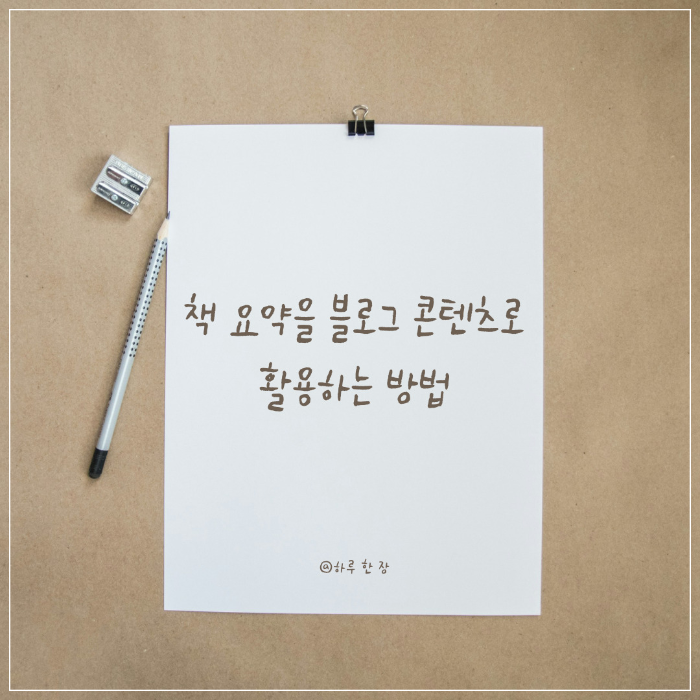 책 요약을 블로그 콘텐츠로
활용하는 방법
@하루 한 장